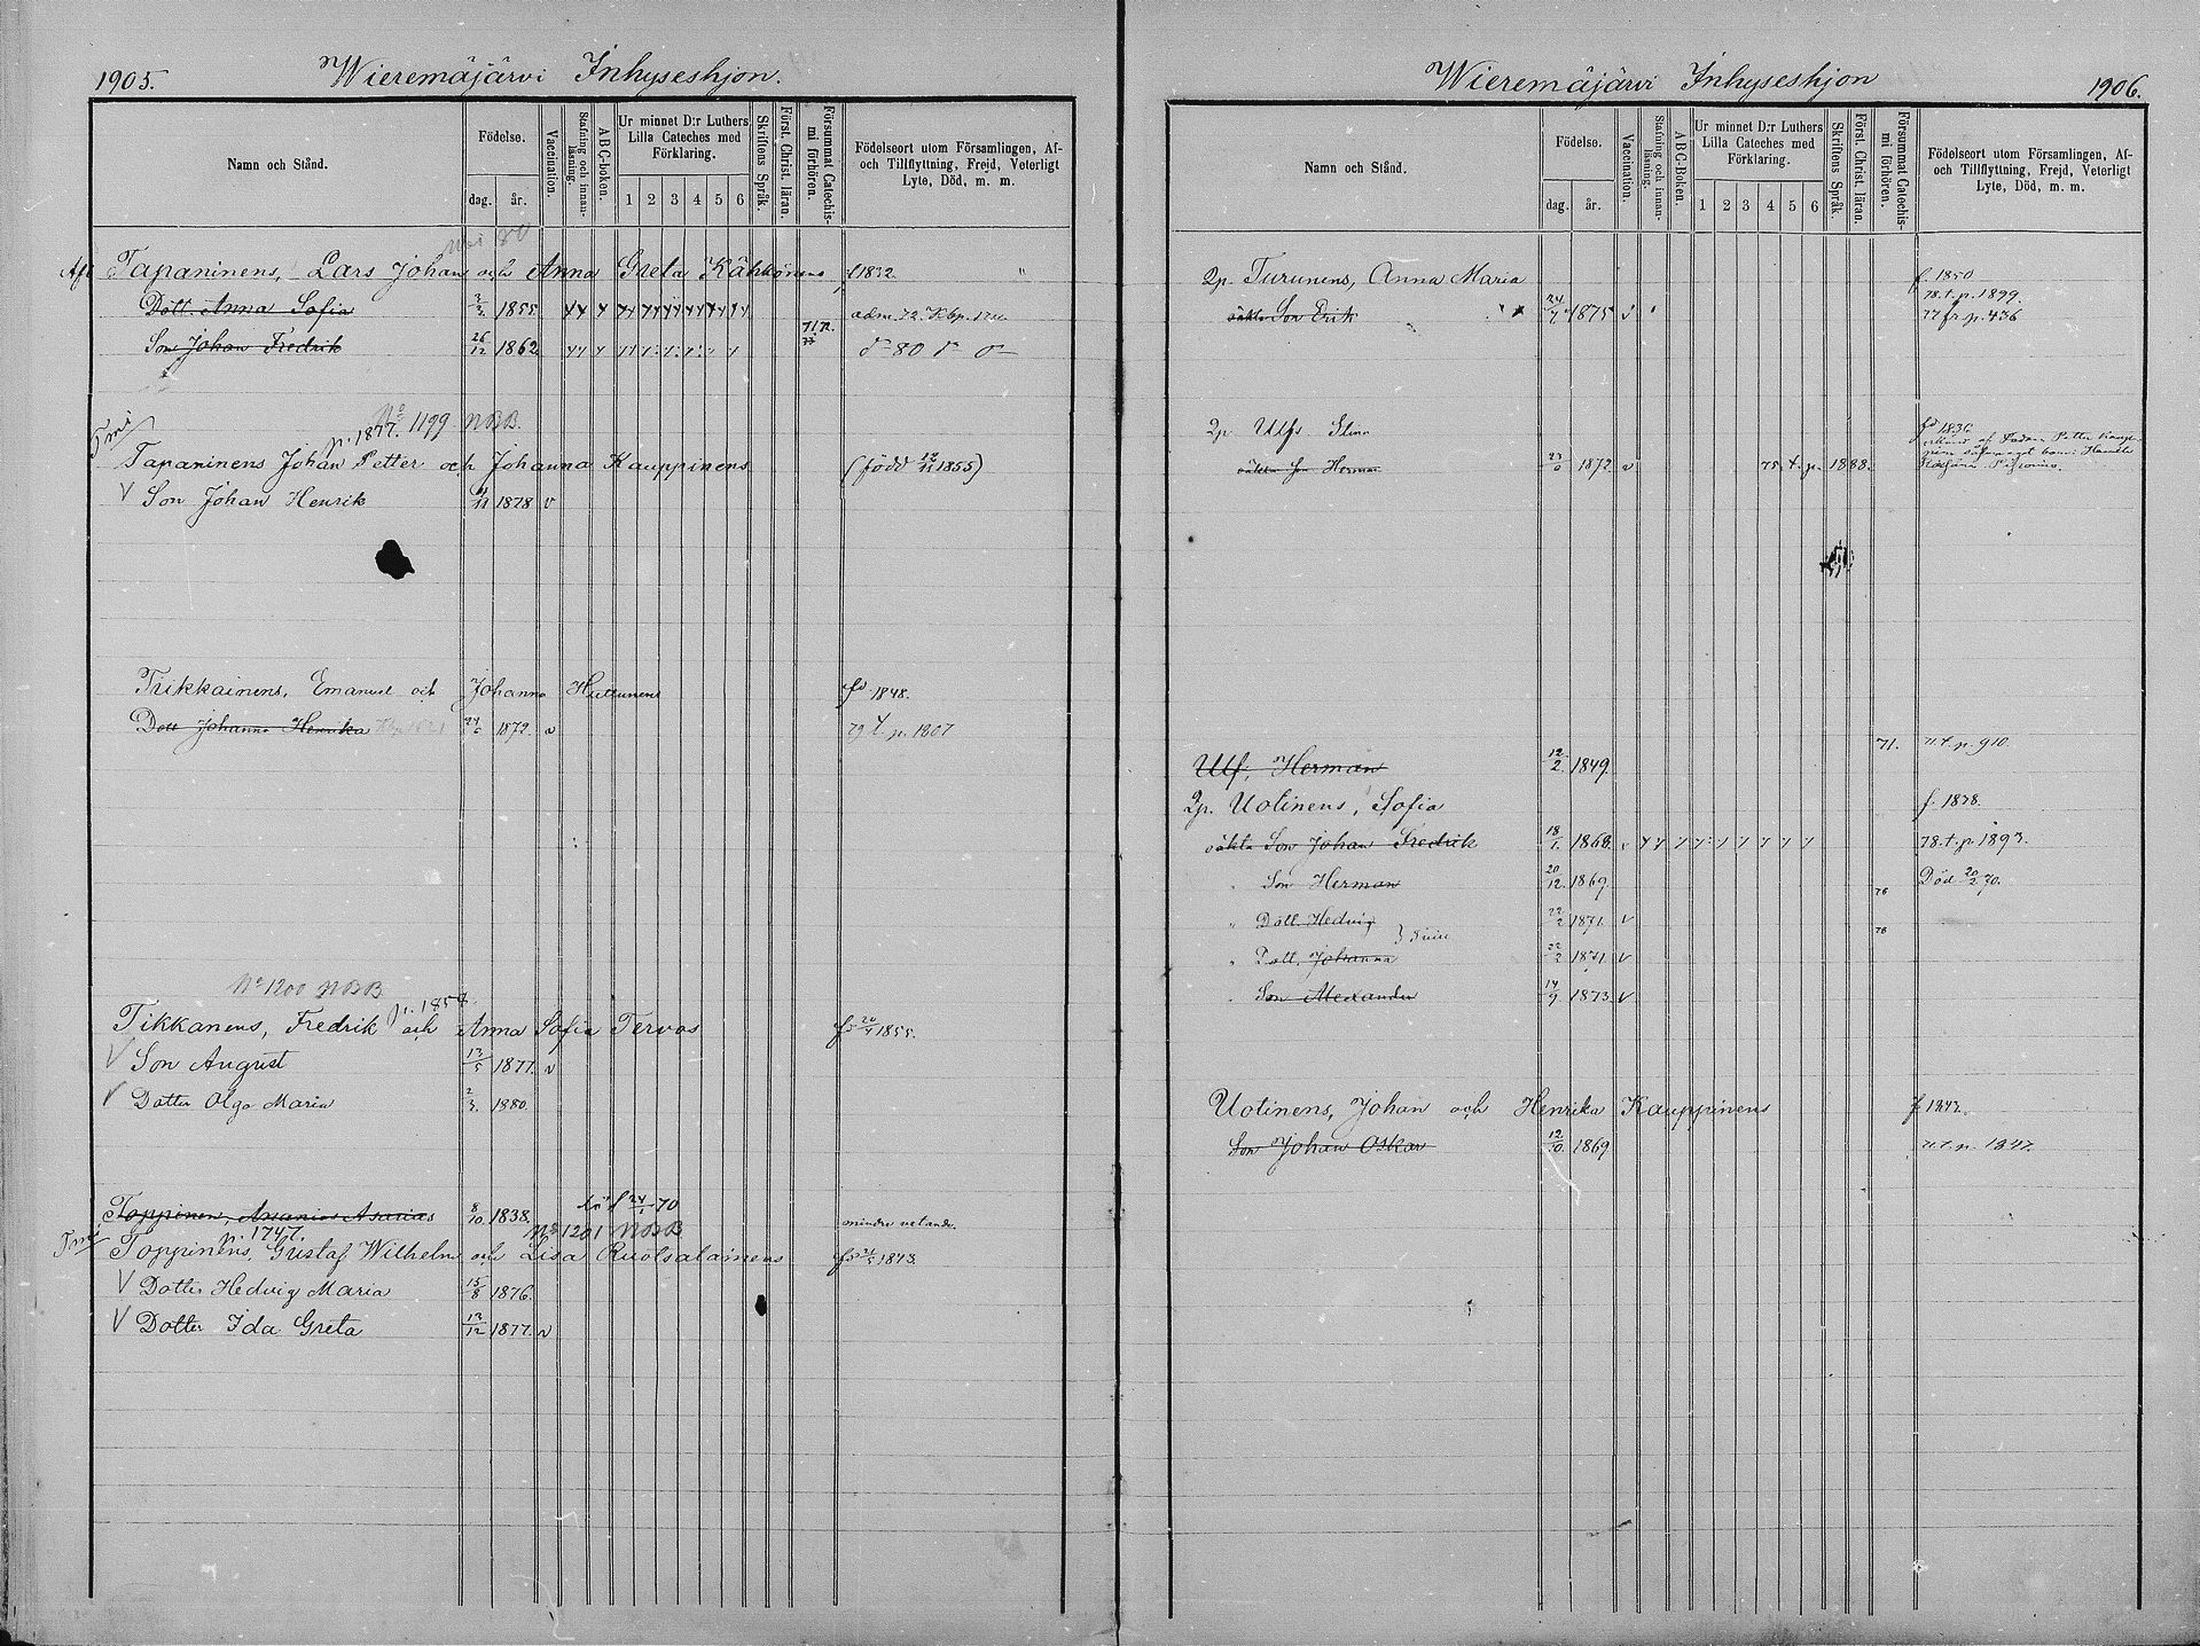 1905.
Wieremäjärvi Inhyseshjon.
Namn och Stånd.
Födelse.
dag.
år.
Vaccination.
Stafning och innan-läsning.
ABC-boken.
Ur minnet D:r Luthers Lilla Cateches med Förklaring.
1 2 3 4 5 6
Skriftens Språk.
Först. Christ. läran.
Försummat Catechis-mi förhören.
Födelseort utom Församlingen, Af- och Tillflyttning, Frejd, Veterligt Lyte, Död, m. m.
80
Tapaninens, Lars Johan och Anna Greta Kähkönens f 1832.
Dott. Anna Sofia 3/3 1855 adm. 72. Kbp.
Son Johan Fredrik 26/12 1862 71 72. 73 80
No 1199 NBB.
p. 1877.
Tapaninens Johan Petter och Johanna Kauppinens (född 12/11 1855)
V Son Johan Henrik 1878 v
Tikkainens, Emanuel och Johanna Huttunens fd 1848.
Dott Johanna Henrika 24/6 1872. v 79 t. p. 1807
No 1200 NBB
p. 1858
Tikkanens, Fredrik och Anna Sofia Tervos fd 20/4 1855.
V Son August 13/5 1877. v
V Dotter Olga Maria 2/3. 1880.
Toppinen, Ananias Asarias 8/10 1838. 24/1 70 mindre vetande.
p. 1747. No 1201 NBB
Toppinens, Gustaf Wilhelm och Lisa Ruotsalainens fd 21/5 1843.
V Dotter Hedvig Maria 15/8 1876.
V Dotter Ida Greta 12/12 1877. v
Wieremäjärvi Inhyseshjon
1906.
Namn och Stånd.
Födelse.
dag.
år.
Vaccination.
Stafning och innan-läsning.
ABC-Boken.
Ur minnet D:r Luthers Lilla Cateches med Förklaring.
1 2 3 4 5 6
Skriftens Språk.
Först. Christ. läran.
Försummat Catechis-mi förhören.
Födelseort utom Församlingen, Af- och Tillflyttning, Frejd, Veterligt Lyte, Död, m. m.
Qp. Turunens, Anna Maria f. 1850
oäkta Son Erik 24/7 1875 v 78. t. p. 1899.
77 fr p. 436
Qp Ulfs Stina fd 1836
oäkta son Herman 23/6 1872. v 75. t. p. 1888.
Ulf, Herman 12/2. 1849. 71. 71. t. p. 910.
Qp. Uotinens, Sofia f. 1838.
oäkta Son Johan Fredrik 18/1. 1868. 78. t. p 1893.
Son Herman 20/12. 1869. Död 20/2 70.
76
" Dott. Hedvig 22/2 1871. v
76
" Dott. Johanna 22/2 1871. v
" Son Alexander 14/9 1873. v
Uotinens, Johan och Henrika Kauppinens f 1843.
Son Johan Oskar 12/10. 1869 71. t. p. 1847.